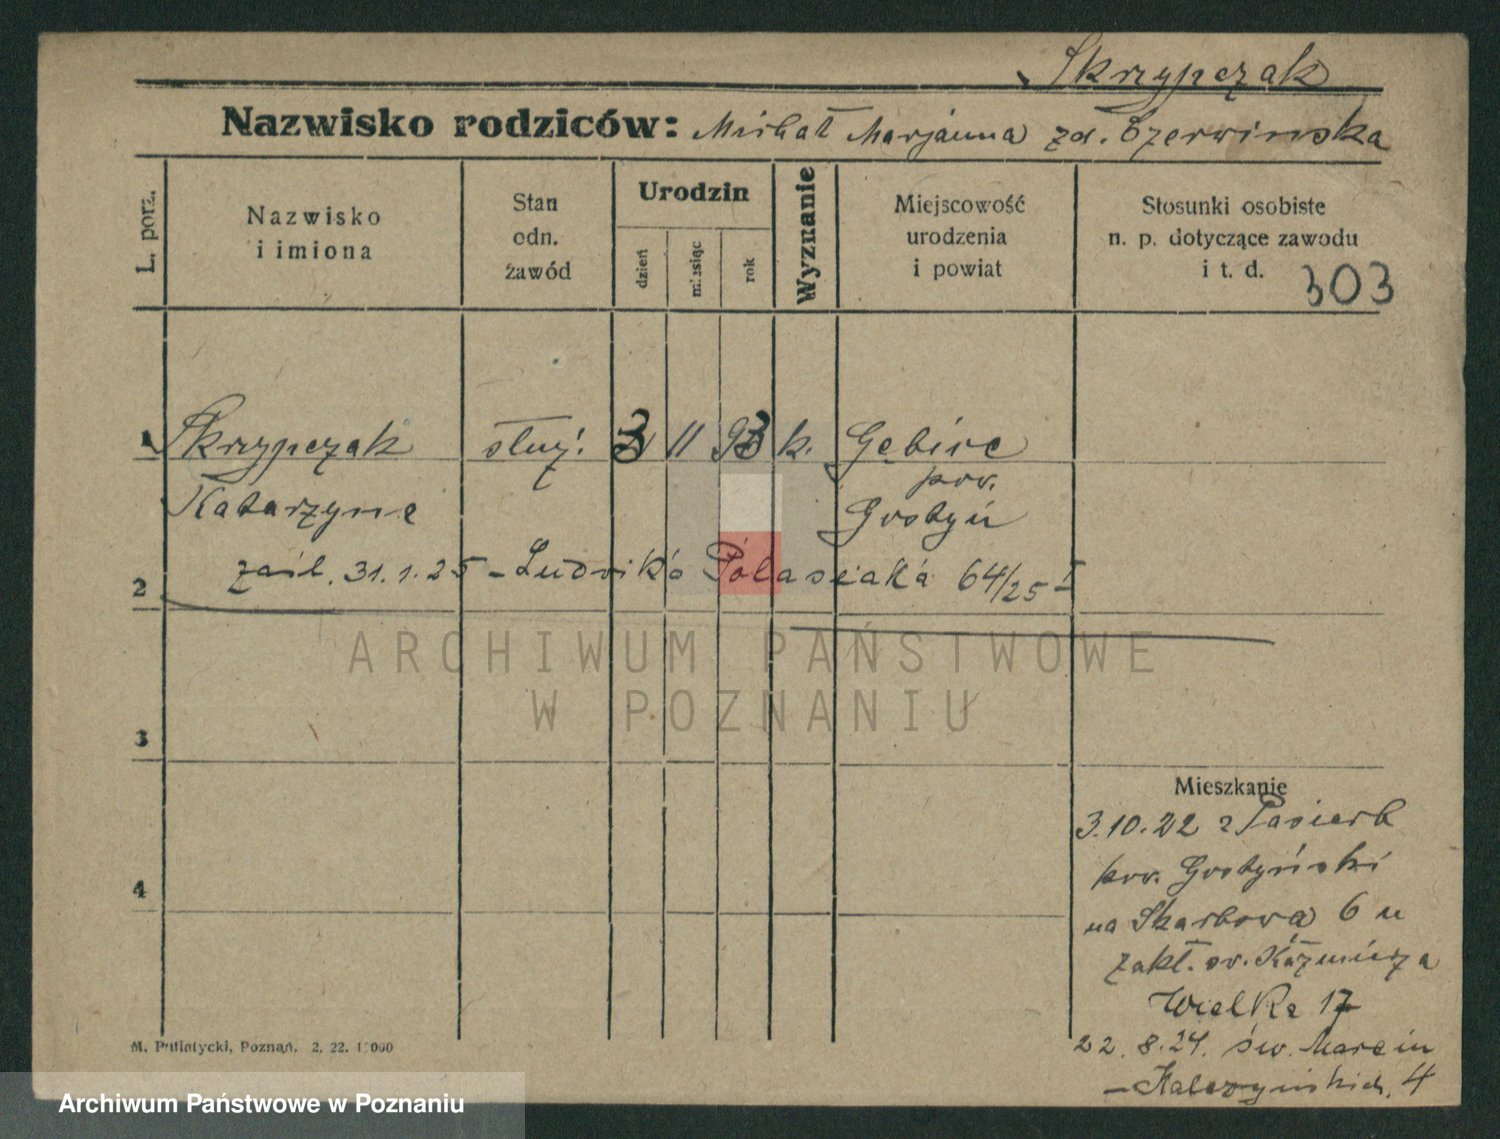 Skrzypczak
Nazwisko rodziców: Michał Marjanna zd. Czerwinska
L. porz.
Nazwisko
i imiona
Stan
odn.
zawód
Urodzin
dzień
miesiąc
rok
Wyznanie
Miejscowość
urodzenia
i powiat
Stosunki osobiste
n. p. dotyczące zawodu
i t. d.
303
1 Skrzypczak służ. 3 11 93 k. Gębice
pow.
Katarzyna Gostyń
2 zaśl. 31.1.25 - Ludwika Polasiaka 64/25
ARCHIWUM PAŃSTWOWE
W POZNANIU
3
Mieszkanie
3.10.22 z Pasierb
4 pow. Gostyński
na Skarbowa 6 u
zakł. św. Kaźmierza
Wielka 17
22.8.24. św. Marcin
M. Putiatycki, Poznań. 2. 22. 1 000
4
Archiwum Państwowe w Poznaniu